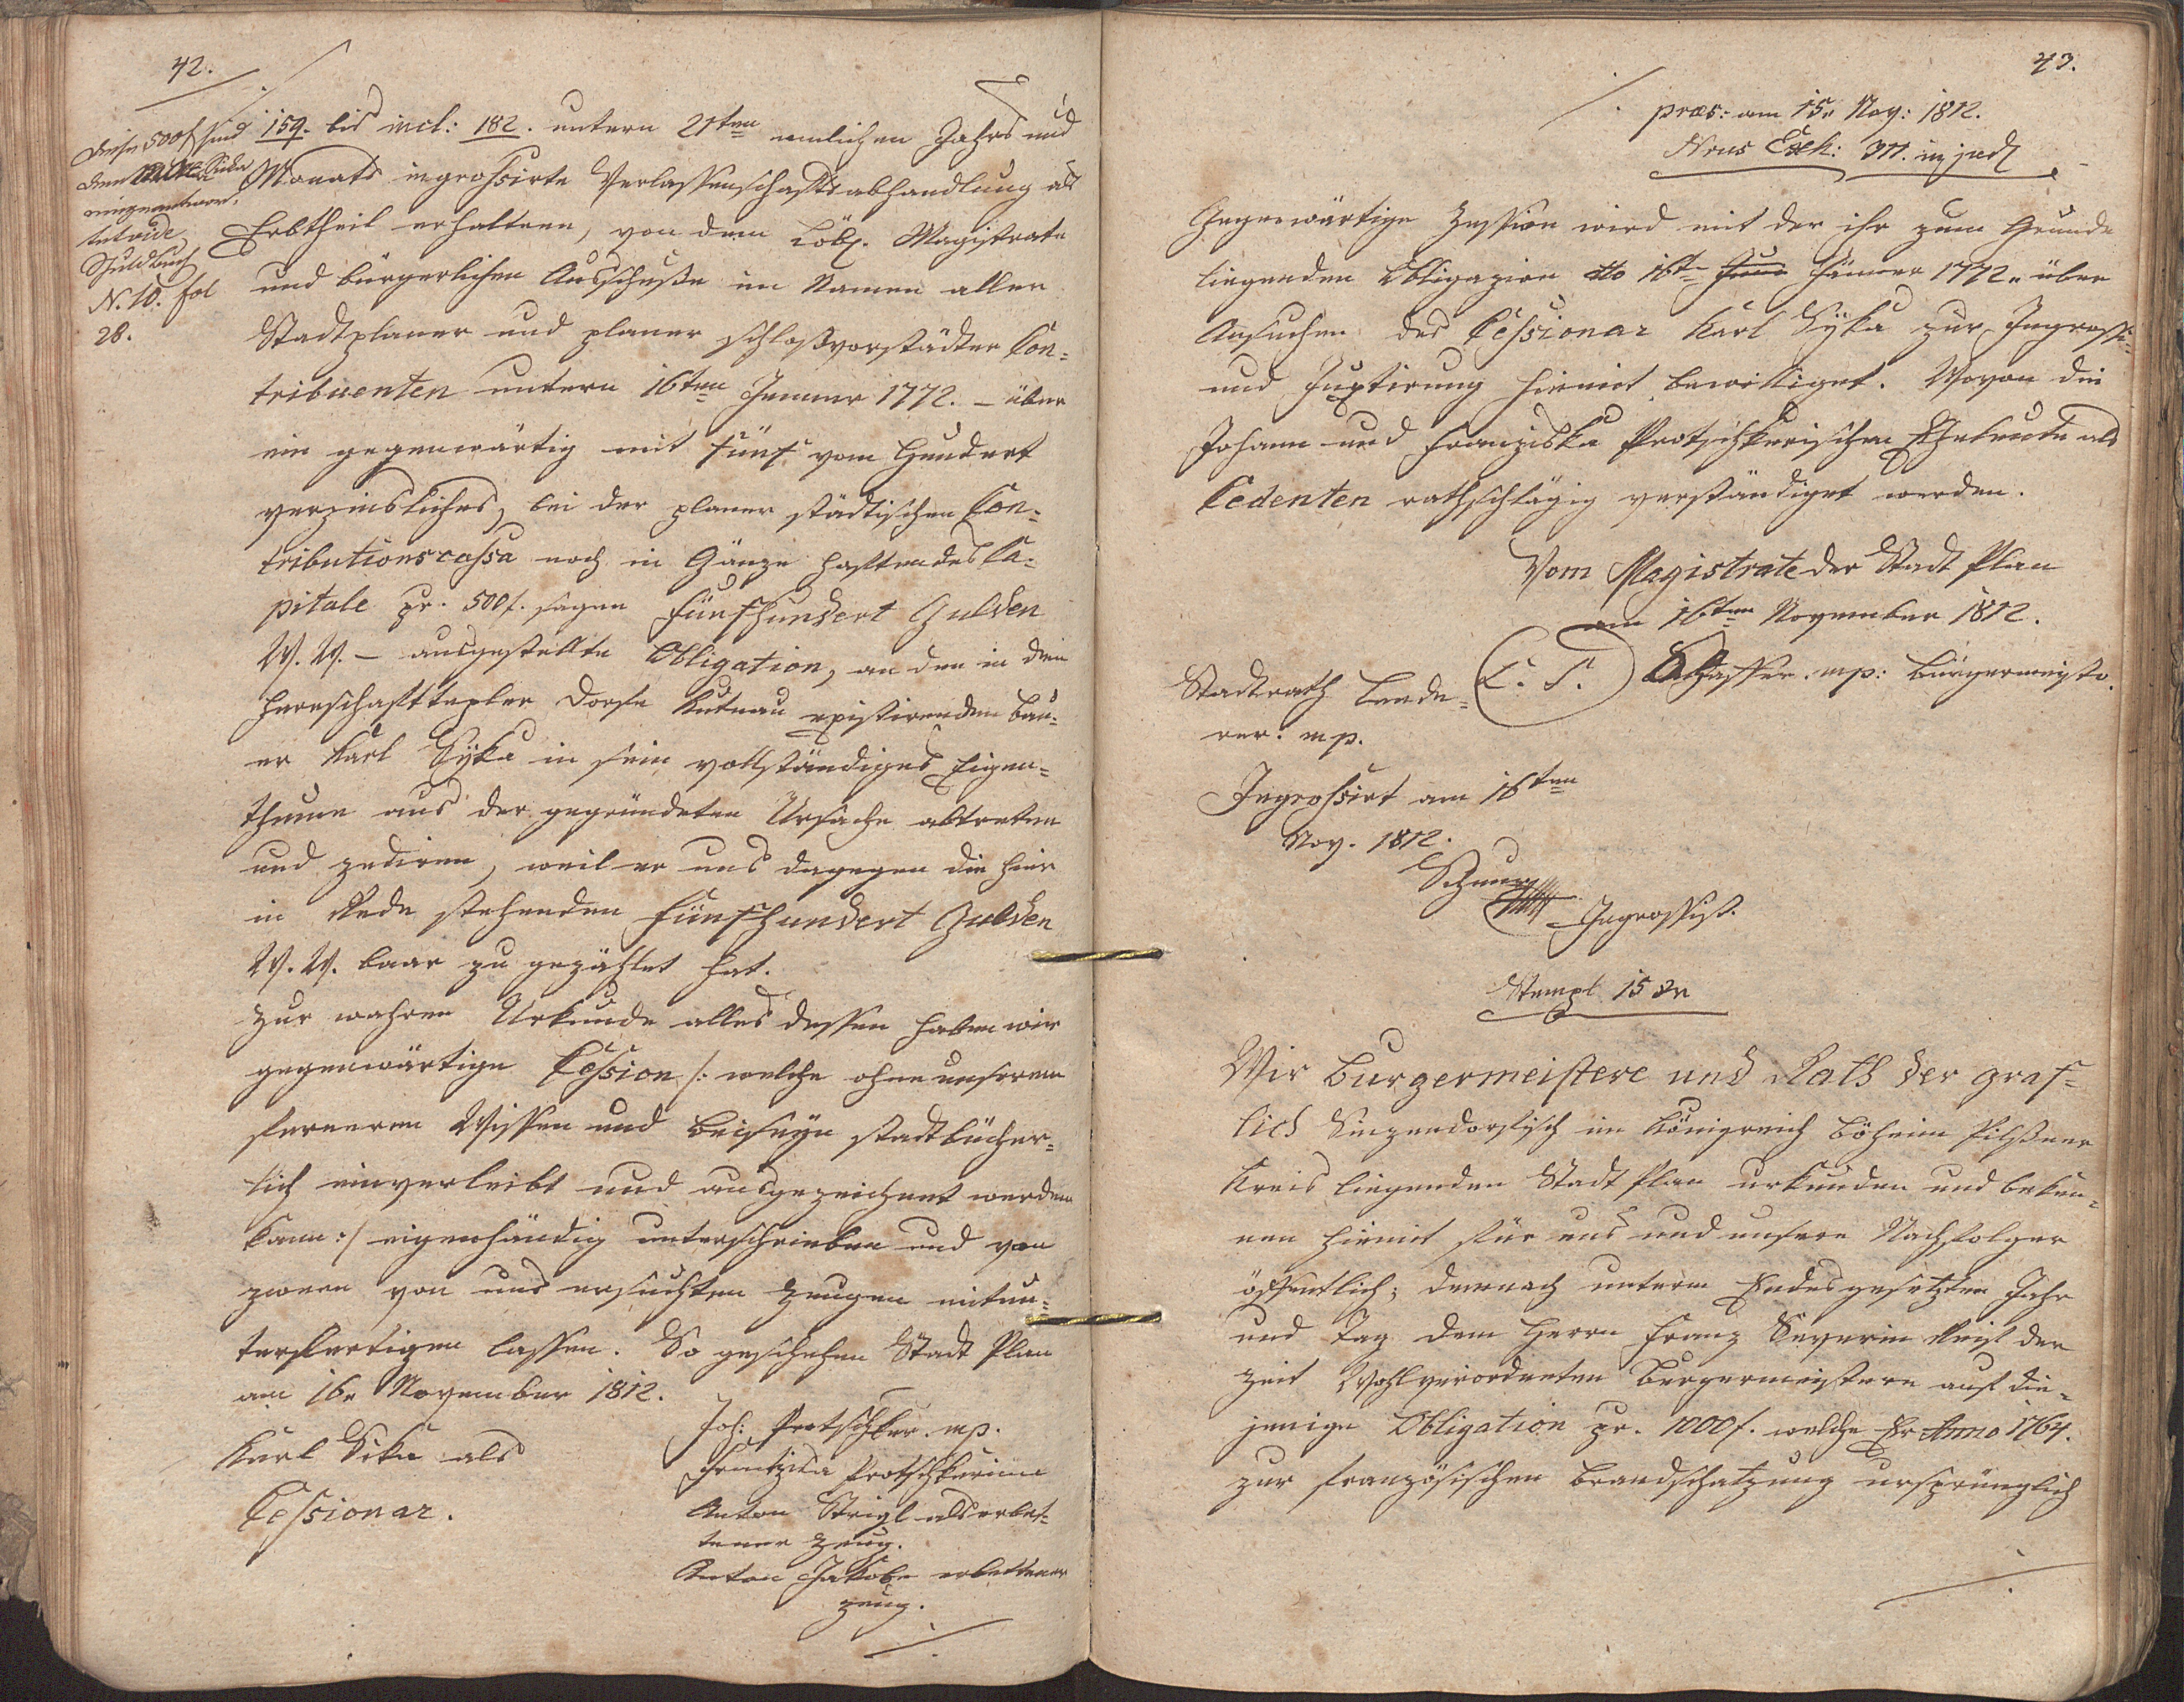 42.
Diese 500 f sind
dem Sicka
eingeantwor-
tet vide
Schuldbuch
N. 10. fol
28.
159. bis incl: 182. untern 21ten nemlichen Jahrs und
Monats ingrossirte Verlassenschaftsabhandlung als
Erbtheil erhaltene, von dem Löbl. Magistrate
und bürgerlichen Ausschuße im Namen aller
Stadtplaner und planer schloßvorstädter Con-
tribuenten untern 16ten Jenner 1772. – über
ein gegenwärtig mit fünf vom Hundert
verzinsliches, bei der planer städtischen Con-
tributionscassa noch in Gänze haftendes Ca-
pitale pr. 500 f. sagen Fünfhundert Gulden
W. W. – ausgestellte Obligation, an den in dem
Herrschafttepler Dorfe Kuttnau existirenden Bau-
er Karl Syka in sein vollständiges Eigen-
thum aus der gegründeten Ursache abtreten
und zediren, weil er uns dagegen die hier
in Rede stehenden Fünfhundert Gulden
W. W. baar zu gezählet hat.
Zur wahren Urkunde alles dessen haben wir
gegenwärtige Cession /: welche ohne unserem
ferneren Wissen und Beiseyn stadtbücher-
lich einverleibt und ausgezeichnet werden
kann :/ eigenhändig unterschrieben und von
zween von uns ersuchten Zeugen mitun-
terfertigen lassen. So geschehen Stadt Plan
am 16n November 1812.
Karl Sika als
Cessionar.
Joh: Protschker. mp.
Frantziska Protschkerinn
Anton Strigl als erbet-
tener Zeug.
Anton Jakobe erbettener
Zeug.
43.
præs: am 15n Nov: 1812.
Nrus Exh: 311. in jud
Gegenwärtige Zession wird mit der ihr zum Grunde
liegenden Obligazion dto 16tn Jänner 1772 über
Ansuchen des Cessionar Karl Syka zur Ingrossi-
und Juxtirung hiemit bewilliget. Wovon die
Johann und Franziska Protschkerischen Eheleute als
Cedenten rathschlägig verständiget werden.
Vom Magistrate der Stadt Plan
am 16ten November 1812.
Stadtrath Lede-
rer. mp.
L. S.
mp: Bürgermeister
Ingrossirt am 16ten
Nov. 1812.
Ingrossist.
Stempl 15 Xr
Wir Burgermeistere und Rath der graf-
lich Sinzendorfisch im Königreich Böheim Pilßner
Kreis liegenden Stadt Plan urkunden und beken-
nen hiemit für uns und unsere Nachfolger
öffentlich; demnach unterm Endesgesetzten Jahr
und Tag dem Herrn Franz Severin der
Zeit Wohlverordneten Burgermeistern auf die-
jenige Obligation pr. 1000 f. welche Er Anno 1764.
zur französischen Brandschatzung ursprünglich